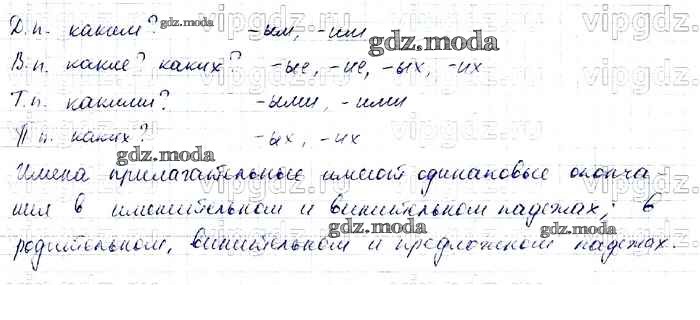 Д.п. каким? -ым, -им
В.п. какие? каких? -ые, -ие, -ых, -их
Т.п. какими? -ыми, -ими
П.п. каких? -ых, -их
Имена прилагательные имеют одинаковые оконча-
ния в именительном и винительном падежах; в
родительном, винительном и предложном падежах.
gdz.moda
gdz.moda
gdz.moda
gdz.moda
gdz.moda
gdz.moda
vipgdz.ru
vipgdz.ru
vipgdz.ru
vipgdz.ru